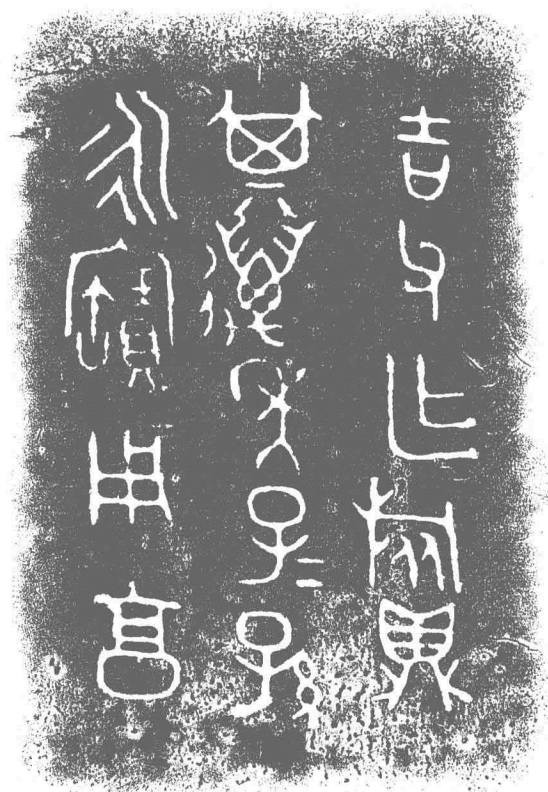 吉父乍旅鼎
其邁年子=孫
永寶用亯